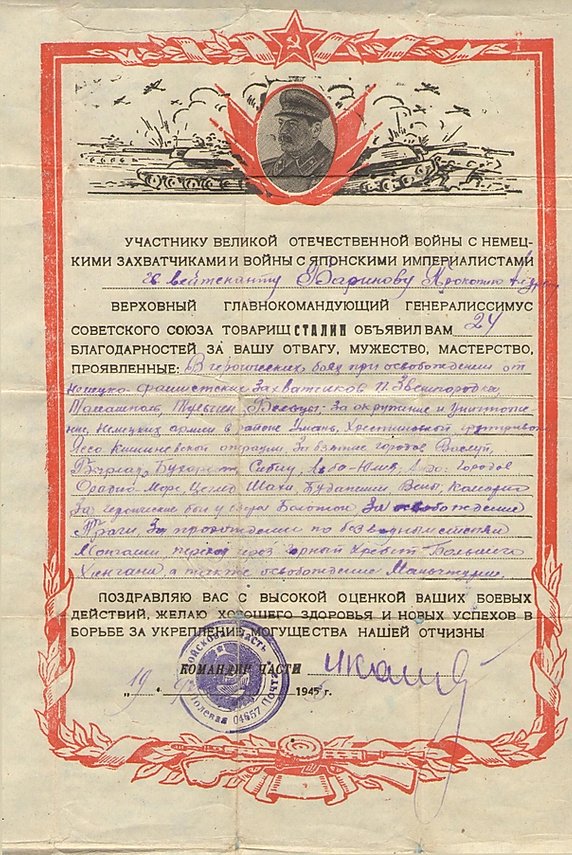 УЧАСТНИКУ ВЕЛИКОЙ ОТЕЧЕСТВЕННОЙ ВОЙНЫ С НЕМЕЦ-
КИМИ ЗАХВАТЧИКАМИ И ВОЙНЫ С ЯПОНСКИМИ ИМПЕРИАЛИСТАМИ
лейтенанту
ВЕРХОВНЫЙ ГЛАВНОКОМАНДУЮЩИЙ ГЕНЕРАЛИССИМУС
СОВЕТСКОГО СОЮЗА ТОВАРИЩ СТАЛИН ОБЪЯВИЛ ВАМ 24
БЛАГОДАРНОСТЕЙ ЗА ВАШУ ОТВАГУ, МУЖЕСТВО, МАСТЕРСТВО,
ПРОЯВЛЕННЫЕ: В героических боях при освобождении от
немецко-фашистских захватчиков Звенигородка,
Тульчин, Бельцы. За окружение и уничтоже-
ние, немецких армий в районе Умань,
Ясско Кишиневской операции, За взятие городов Васлуй,
Бухарест, Сибиу, городов
Будапешт Вены,
За героические бои у озера Болотон, За освобождение
Праги, За прохождение по безводным степям
Монголии, через горный хребет Большого
Хингана, а также освобождение Маньчжурии.
ПОЗДРАВЛЯЮ ВАС С ВЫСОКОЙ ОЦЕНКОЙ ВАШИХ БОЕВЫХ
ДЕЙСТВИЙ, ЖЕЛАЮ ХОРОШЕГО ЗДОРОВЬЯ И НОВЫХ УСПЕХОВ В
БОРЬБЕ ЗА УКРЕПЛЕНИЕ МОГУЩЕСТВА НАШЕЙ ОТЧИЗНЫ
КОМАНДИР ЧАСТИ
19 1945
Войсковая часть
Полевая Почта 04657